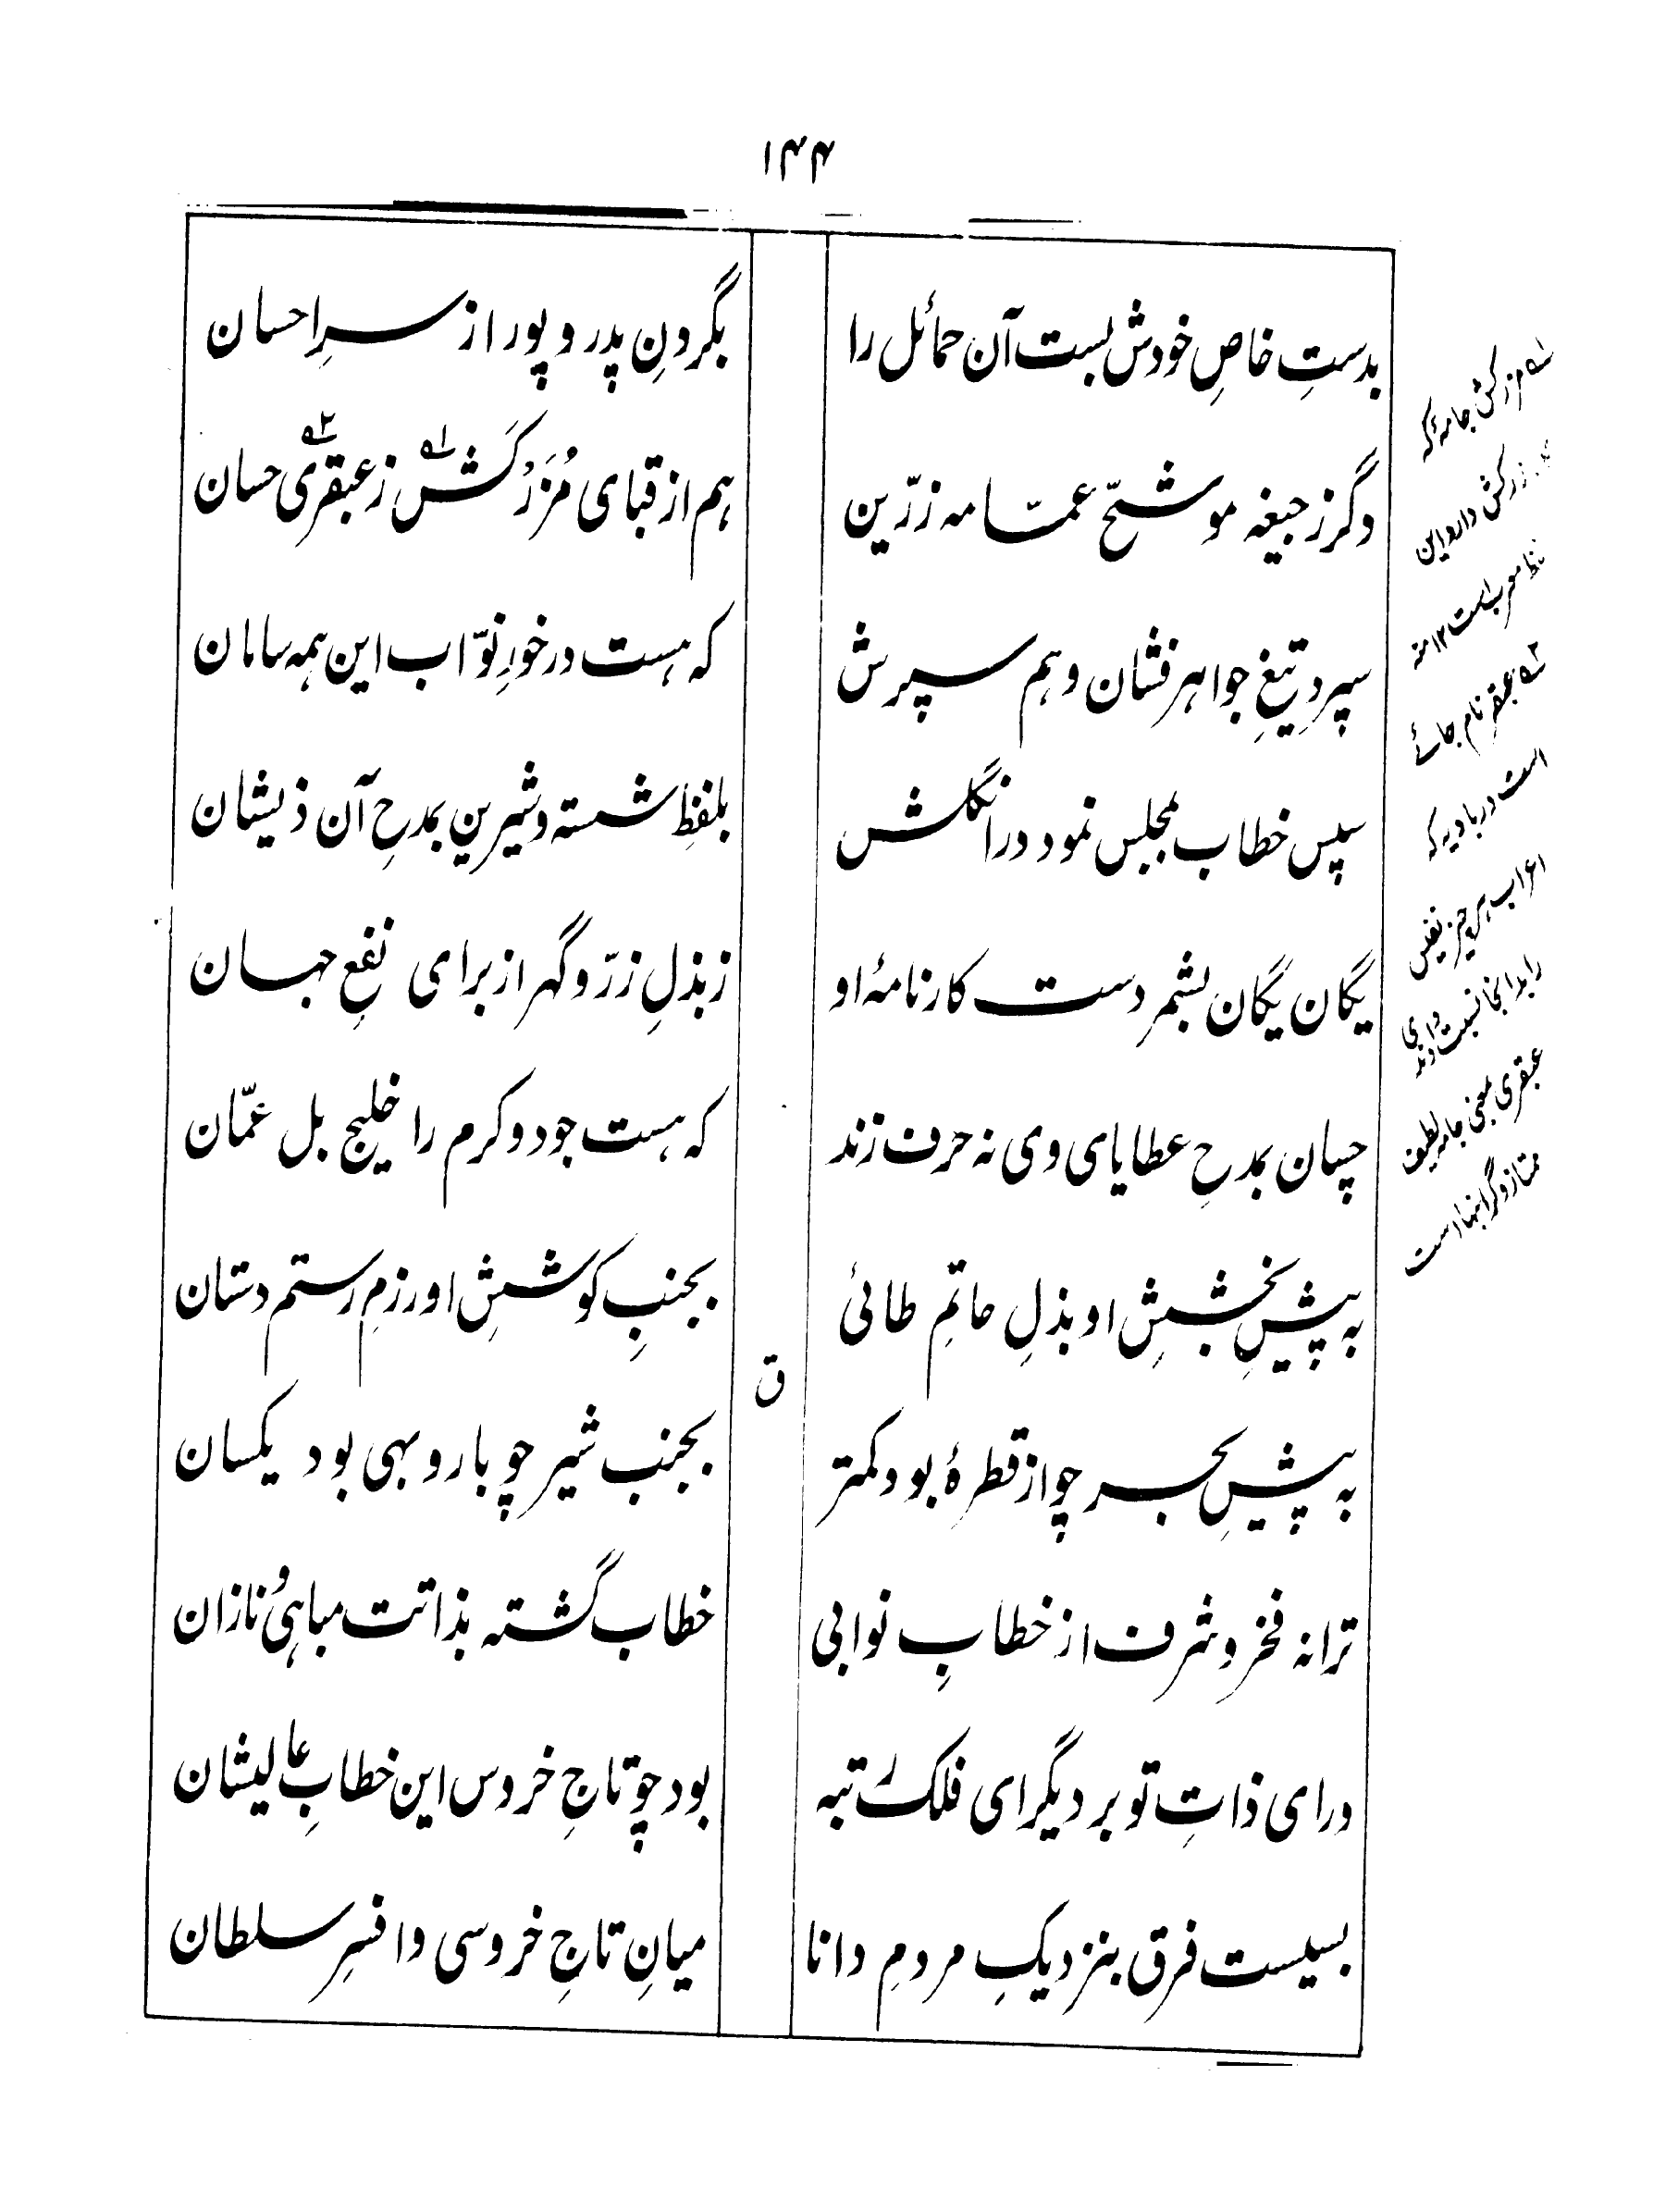 ۱۴۴
بدستِ خاصِ خودش بست آن حمائل را
بگردنِ پدر و پور از سرِ احسان
دگر ز جیغه موشحّ عمّامه زرّین
ہم از قبای مُزَرْکَش ز عبقری حسان
سپرد تیغِ جواہر فشان و ہم سپرش
کہ ہست درخورِ نوّاب این ہمہ سامان
سپس خطاب بمجلس نمود در انگلش
بلفظِ شستہ و شیرین بمدحِ آن ذیشان
یگان یگان بشمردست کارنامۂ او
ز بذلِ زرّ و گہر از برای نفعِ جہان
چسان بمدحِ عطایای وی نہ حرف زند
کہ ہست جود و کرم را خلیج بل عمّان
بہ پیشِ بخششِ او بذلِ حاتمِ طائی
بجنبِ کوششِ او رزمِ رستم دستان
ق
بہ پیشِ بحر چو از قطرۂ بود کمتر
بجنب شیر چو با روبہی بود یکسان
ترا نہ فخر و شرف از خطابِ نوابی
خطاب گشتہ بذاتت مباہیُ نازان
ورای ذاتِ تو بر دیگر ای فلک رتبہ
بود چو تاجِ خروس این خطابِ عالیشان
بسیست فرق بنزدیکِ مردمِ دانا
میانِ تاجِ خروسی و افسرِ سلطان
مزرکش جامۂ کہ
زرکش دارد و این
معرب است ۱۲ منہ
عبقر نام جائے
است در بادیہ کہ
اعراب ہر چیز نفیس
را بدانجا نسبت دادندی
عبقری بمعنی جامہ لطیف
ممتاز و گرانبہا است